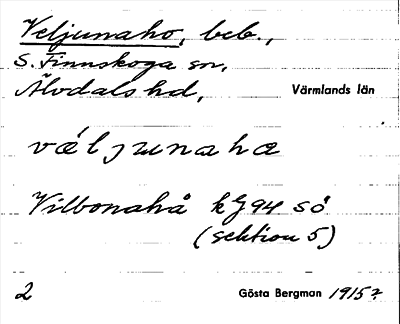 Veljunaho, beb.,
S. Finnskoga sn,
Älvdals hd, Värmlands län
väljunaha
Vilbonahå kJ94 sö
(sektion 5)
2 Gösta Bergman 1915?